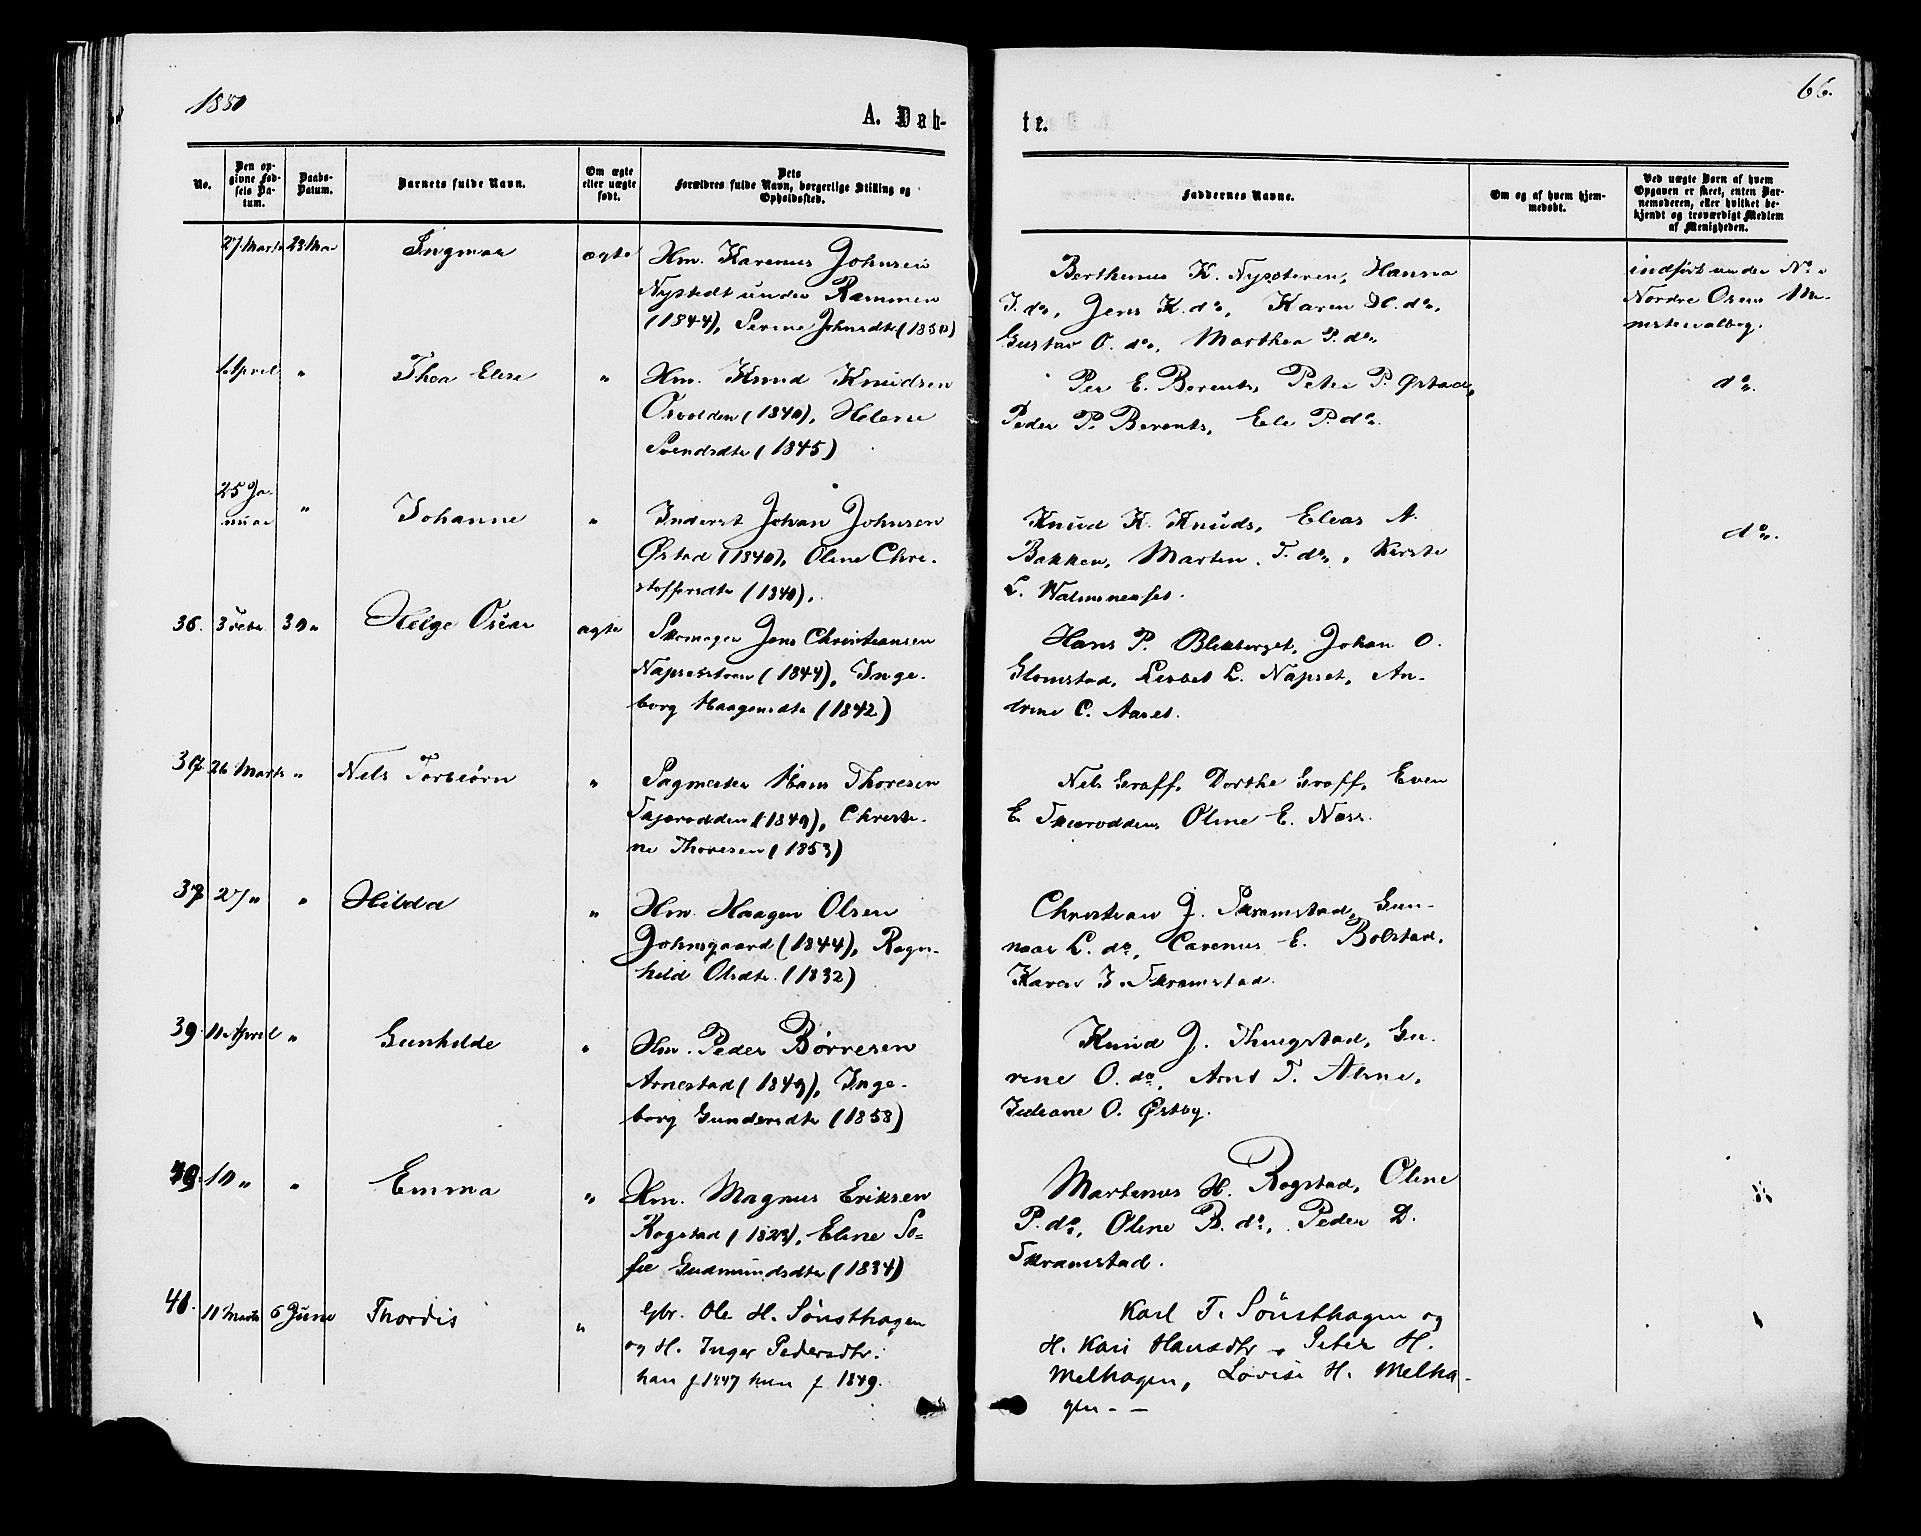 1880
66.
A. Døb-
te.
No.
Den op-
givne Fød-
sels Da-
tum.
Daabs-
Datum.
Barnets fulde Navn.
Om ægte
eller uægte
født.
Dets
Forældres fulde Navn, borgerlige Stilling og
Opholdssted.
Faddernes Navne.
Om og af hvem hjem-
medøbt.
Ved uægte Barn af hvem
Opgaven er skeet, enten Bar-
nemoderen, eller hvilket be-
kjendt og troværdigt Medlem
af Menigheden.
27 Marts 23 Mai Ingmar ægte Hm. Karenus Johnsen
Nystedt under Rammen
(1844), Serine Johnsdtr (1850)
Berthenus K. Nysæteren, Hanna
J. do, Jens K. do, Karen H. do,
Gustav O. do, Marthea P. do
indført under No
Nordre Osens Mi-
nisterialbog.
April " Thea Elise " Hm. Knud Knudsen
Osvolden (1840), Helene
Svendsdtr (1845)
Per E. Berents, Peter P. Østad,
Peder P. Berents, Eli P. do
do.
25 Ja-
nuar " Johanne " Inderst Johan Johnsen
Østad (1840), Oline Chri-
stoffersdtr (1840).
Knud K. Knuds, Elias A.
Bakken, Martin T. do, Kirsti
L.
do.
36. 3 Febr. 30 " Helge Oscar ægte Skomager Jens Christiansen
Napsetstuen (1844), Inge-
borg Haagensdtr (1842)
Hans P. Blikberget, Johan O.
Glomstad, Lisbet L. Napset, An-
drine C. Aaset.
37 26 Marts " Nils Torbiørn " Sagmester Hans Thoresen
Skjærodden (1849), Christi-
ne Thoresen (1853)
Nils Graff, Dorthe Graff, Even
E. Skjærodden, Oline E. Næss.
38 27 " " Hilda " Hm. Haagen Olsen
Johnsgaard (1844), Ragn-
hild Olsdtr. (1832)
Christian J. Skramstad, Gun-
naar L. do, Carenus E. Bolstad,
Karen J. Skramstad.
39. 11 April " Gunhilde " Hm. Peder Børresen
Arnestad (1849), Inge-
borg Gundersdtr (1858)
Knud J. Thingstad, Gu-
rine O. do, Arnt T. Alme,
Juliane O. Østby.
40. 10 " " Emma " Hm. Magnus Eriksen
Rogstad (1823), Eline So-
fie Gudmundsdtr (1834)
Martinus H. Rogstad, Oline
P. do, Oline B. do, Peder D.
Skramstad.
41. 11 Marts 6 Juni Thordis " Gbr. Ole H. Sönsthagen
og H. Inger Pedersdtr.
han f 1847 hun f 1849.
Karl T. Sönsthagen og
H. Kari Hansdtr. Peter H.
Melhagen, Lovise H. Melha-
gen. -